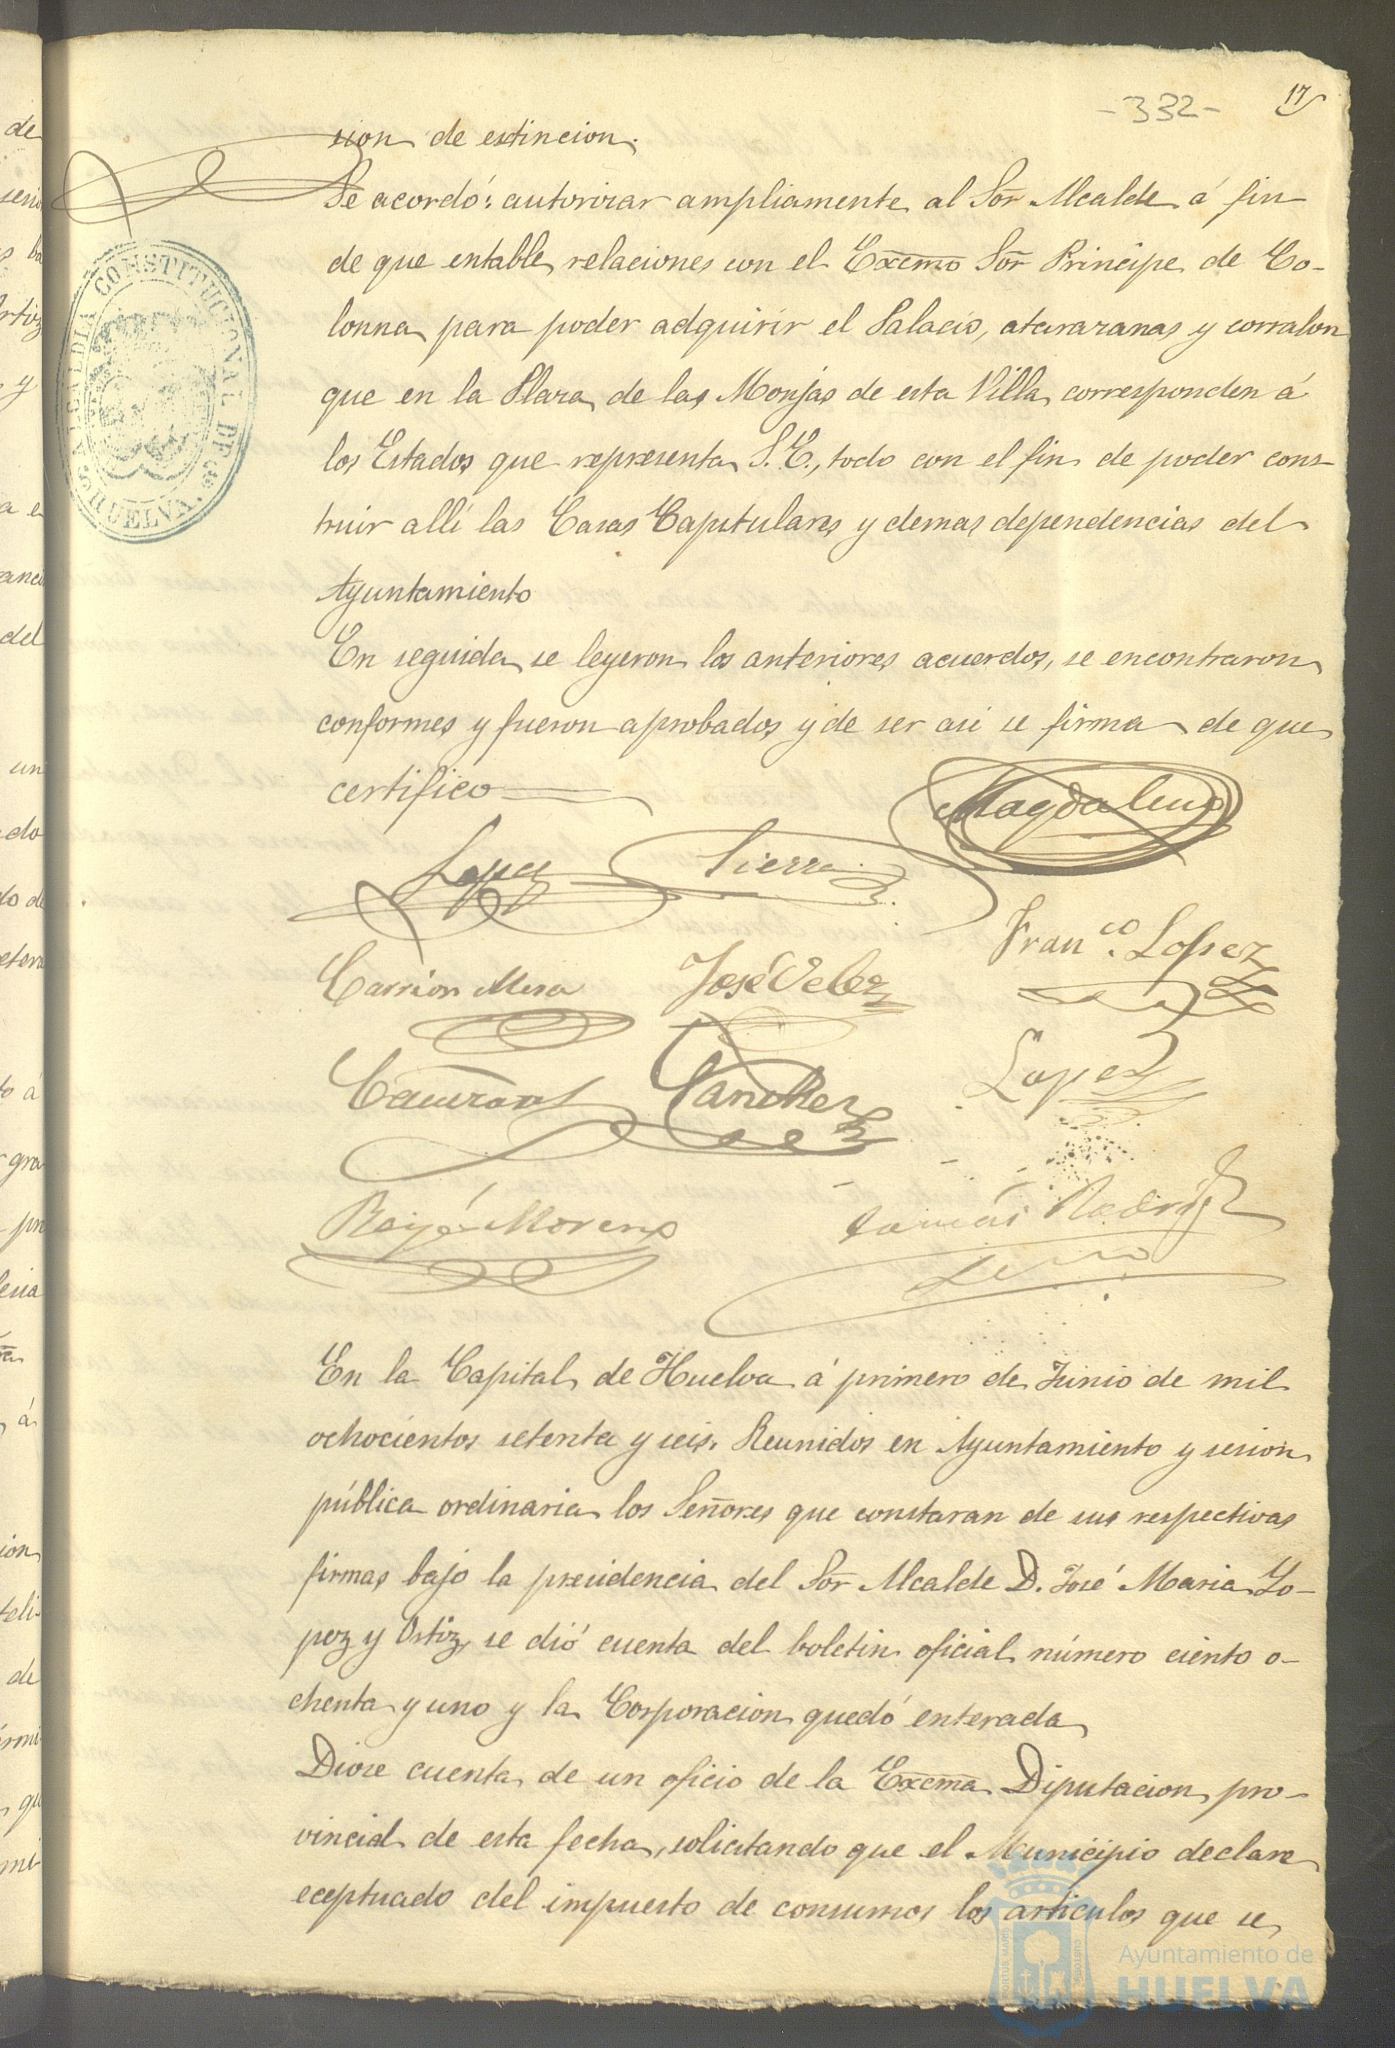 -332-
17
sion de estincion.
Se acordó: autorizar ampliamente al Sor Alcalde á fin
de que entable relaciones con el Excmo Sor Principe de Co-
lonna para poder adquirir el Palacio, atarazanas y corralon
que en la Plaza de las Monjas de esta Villa corresponden á
los Estados que representa S.E., todo con el fin de poder cons-
truir allí las Casas Capitulares y demas dependencias del
Ayuntamiento
En seguida se leyeron los anteriores acuerdos, se encontraron
conformes y fueron aprobados y de ser asi se firma de que
certifico
Magdaleno
Lopez Sierra
Franco. Lopez
Carrion Mesa José Velez
Sanchez Lopez
Moreno
Tomás Rodrigz
En la Capital de Huelva á primero de Junio de mil
ochocientos setenta y seis. Reunidos en Ayuntamiento y sesion
pública ordinaria los Señores que constaran de sus respectivas
firmas bajo la presidencia del Sor Alcalde D. José Maria Lo-
pez y Ortiz, se dió cuenta del boletin oficial número ciento o-
chenta y uno y la Corporacion quedó enterada
Diose cuenta de un oficio de la Excma Diputacion pro-
vincial de esta fecha, solicitando que el Municipio declare
eceptuado del impuesto de consumos los articulos que se
ALCALDIA CONSTITUCIONAL DE HUELVA
Ayuntamiento de
HUELVA